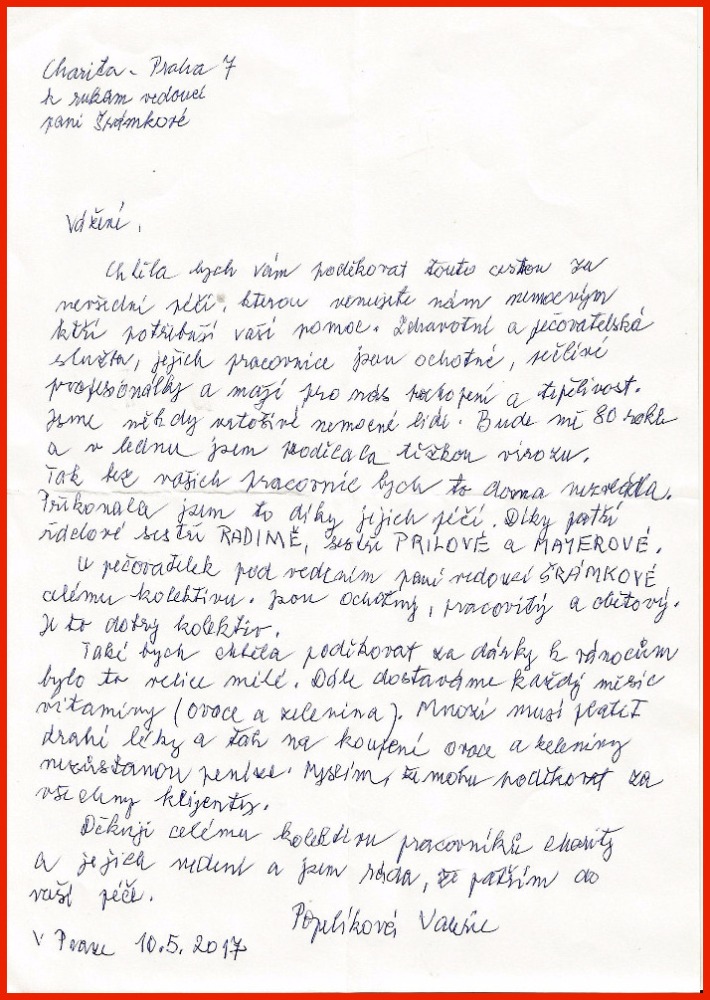 Charita - Praha 7
k rukám vedoucí
paní Šrámkové
Vážení,
Chtěla bych vám poděkovat touto cestou za
nevšední péči, kterou venujete nám nemocným
kteří potřebují vaší pomoc. Zdravotní a pečovatelská
služba, jejich pracovnice jsou ochotné, sečlivé
profesonálky a mají pro nás pochopení a trpělivost.
Jsme někdy netrpěliví nemocné lidé. Bude mě 80 roků
a v lednu jsem prodělala těžkou virozu.
Tak bez vašich pracovnic bych to doma nezvládla.
Překonala jsem to díky jejich péči. Díky patří
üdelové sestři RADIMĚ, sestři PRILOVÉ a MAYEROVÉ.
U pečovatelek pod vedením paní vedoucí ŠRÁMKOVÉ
celému kolektivu. jsou ochotný, pracovitý a obětový.
Je to dobrý kolektiv.
Také bych chtěla poděkovat za dárky k vánocům
bylo to velice milé. Dále dostaváme každý měsíc
vitamíny (ovoce a zelenina). Mnozí musí platit
drahé léky a tak na koupení ovoce a zeleniny
nezůstanou peníze. Myslím, že mohu poděkovat za
všechny klijenty.
Děkuji celému kolektivu pracovníků charity
a jejich vedení a jsem ráda, že patřím do
vaší péče.
Valerie
V Praze 10.5.2017